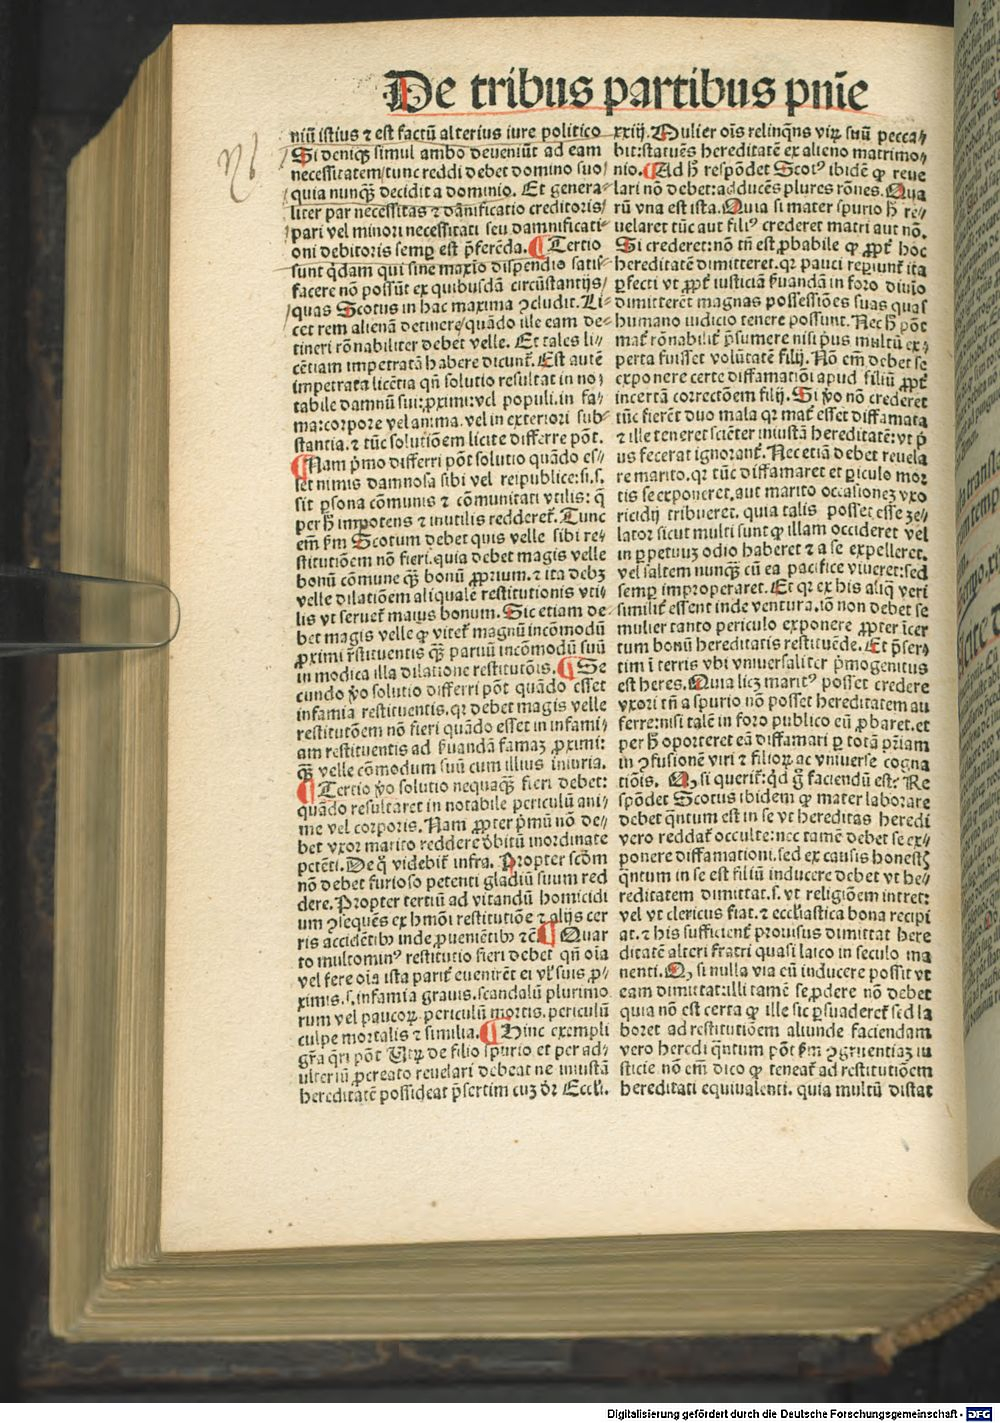 De tribus partibus pnīe
niū istius ⁊ est factū alterius iure politico
Si deniqꝫ simul ambo deveniūt ad eam
necessitatem/tunc reddi debet domino suo/
quia nunqꝫ decidit a dominio. Et genera⸗
liter par necessitas ⁊ dānificatio creditoris/
pari vel minori necessitati seu damnificati⸗
oni debitoris semꝑ est p̄ferēda. ¶ Tertio
sunt q̄dam qui sine maxīo dispendio satis⸗
facere nō possūt ex quibusdā circūstantijs/
quas Scotus in hac maxima ꝯcludit. Li⸗
cet rem alienā detinere/quādo ille eam de⸗
tineri rōnabiliter debet velle. Et tales li⸗
cētiam impetratā habere dicunt᷑. Est autē
impetrata licētia qn̄ solutio resultat in no⸗
tabile damnū sui:ꝓximi:vel populi. in fa⸗
ma:corpore vel anima. vel in exteriori sub⸗
stantia. ⁊ tūc solutiōem licite differre pōt.
¶ Nam p̄mo differri pōt solutio quādo es⸗
set nimis damnosa sibi vel reipublice:si.s.
sit ꝑsona cōmunis ⁊ cōmunitati vtilis: q̄
per h̄ impotens ⁊ inutilis redderet᷑. Tunc
em̄ ẜm Scotum debet quis velle sibi re⸗
stitutiōem nō fieri. quia debet magis velle
bonū cōmune qꝫ bonū ꝓprium. ⁊ ita debꝫ
velle dilatiōem aliquale restitutionis vti⸗
lis vt seruet᷑ maius bonum. Sic etiam de⸗
bet magis velle ꝙ vitet᷑ magnū incōmodū
ꝓximi r̄stituentis qꝫ paruū incōmodū suū
in modica illa dilatione restitutōis. ¶ Se
cundo v̄o solutio differri pōt quādo esset
infamia restituentis. qꝛ debet magis velle
restitutōem nō fieri quādo esset in infami⸗
am restituentis ad ẜuandā famaꝫ ꝓximi:
qꝫ velle cōmodum suū cum illius iniuria.
¶ Tertio v̄o solutio nequaqꝫ fieri debet:
quādo resultaret in notabile periculū ani⸗
me vel corporis. Nam ꝓpter p̄mū nō de⸗
bet vxor marito reddere d̄bitū inordinate
petēti. De q̄ videbit᷑ infra. Propter scd̄m
nō debet furioso petenti gladiū suum red
dere. Propter tertiū ad vitandū homicidi
um ꝯsequēs ex hmōi restitutiōe ⁊ alijs cer
ris accidētibꝰ inde ꝓueniētibꝰ ⁊c̄. ¶ Quar
to multominꝰ restitutio fieri debet qn̄ oīa
vel fere oīa ista parit᷑ euenirēt ei vl̓ suis ꝓ⸗
ximis. s. infamia grauis. scandalū plurimo
rum vel paucoꝝ. periculū mortis. periculū
culpe mortalis ⁊ similia. ¶ Hinc exempli
gr̄a q̄ri pōt Utꝝ de filio spurio et per ad⸗
ulteriū ꝓcreato reuelari debeat ne iniustā
hereditatē possideat p̄sertim cuꝫ d̄r Eccli.
xxiij. Mulier oīs relinq̄ns viꝝ suū pecca⸗
bit:statuēs hereditatē ex alieno matrimo⸗
nio. ¶ Ad h̄ respōdet Scotꝰ ibidē ꝙ reue
lari nō debet:adducēs plures rōnes. Qua
rū vna est ista. Quia si mater spurio h̄ re⸗
uelaret tūc aut filiꝰ crederet matri aut nō.
Si crederet:nō tn̄ est ꝓbabile ꝙ ꝓpt᷑ hoc
hereditatē dimitteret. qꝛ pauci reꝑiunt᷑ ita
ꝑfecti vt ꝓpt᷑ iusticiā ẜuandā in foro diuīo
dimitterēt magnas possessiōes suas quas
humano iudicio tenere possunt. Nec h̄ pōt
mat᷑ rōnabilit᷑ p̄sumere nisi p̄us multū ex⸗
perta fuisset volūtatē filij. Nō em̄ debet se
exponere certe diffamatiōi apud filiū ꝓpt᷑
incertā correctōem filij. Si v̄o nō crederet
tūc fierēt duo mala qꝛ mat᷑ esset diffamata
⁊ ille teneret sciēter iniustā hereditatē: vt p̄
us fecerat ignorant᷑. Nec etiā debet reuela
re marito. qꝛ tūc diffamaret et ꝑiculo mor
tis se exponeret. aut marito occasioneꝫ vxo
ricidij tribueret. quia talis posset esse ze⸗
lator sicut multi sunt ꝙ illam occideret vel
in ꝑpetuuꝫ odio haberet ⁊ a se expelleret.
vel saltem nunqꝫ cū ea pacifice viueret:sed
semꝑ improperaret. Et qꝛ ex his aliq̄ veri
similit᷑ essent inde ventura. iō non debet se
mulier tanto periculo exponere ꝓpter īcer
tum bonū hereditatis restituēde. Et p̄ser⸗
tim ī terris vbi vniuersaliter p̄mogenitus
est heres. Quia licꝫ maritꝰ posset credere
vxori tn̄ a spurio nō posset hereditatem au
ferre:nisi talē in foro publico eū ꝓbaret. et
per h̄ oporteret eā diffamari ꝑ totā pr̄iam
in ꝯfusionē viri ⁊ filioꝝ ac vniuerse cogna
tiōis. Qꝫ si querit᷑:qd̓ g̊ faciendū est: Re
spōdet Scotus ibidem ꝙ mater laborare
debet q̄ntum est in se vt hereditas heredi
vero reddat᷑ occulte:nec tamē debet se ex⸗
ponere diffamationi. sed ex causis honestꝭ
q̄ntum in se est filiū inducere debet vt he⸗
reditatem dimittat. s. vt religiōem intret:
vel vt clericus fiat. ⁊ ecclīastica bona recipi
at. ⁊ his sufficient᷑ prouisus dimittat here
ditatē alteri fratri quasi laico in seculo ma
nenti. Qꝫ si nulla via eū inducere possit vt
eam dimittat:illi tamē se ꝓdere nō debet
quia nō est certa ꝙ ille sic ꝑsuaderet᷑ sed la
boret ad restitutiōem aliunde faciendam
vero heredi q̄ntum pōt ẜm ꝯgruentiaꝫ iu
sticie nō em̄ dico ꝙ teneat᷑ ad restitutiōem
hereditati equiualenti. quia multū distat
Digitalisierung gefördert durch die Deutsche Forschungsgemeinschaft - DFG